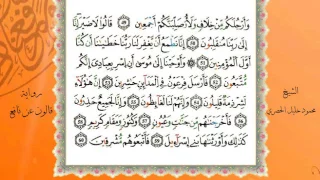 وَأَرْجُلَكُم مِّنْ خِلَٰفٍ وَلَأُصَلِّبَنَّكُمْ أَجْمَعِينَ ٤٩ قَالُوا۟ لَا ضَيْرَ إِنَّا
إِلَىٰ رَبِّنَا مُنقَلِبُونَ ٥٠ إِنَّا نَطْمَعُ أَنْ يَّغْفِرَ لَنَا رَبُّنَا خَطَٰيَٰنَا أَن كُنَّا
أَوَّلَ ٱلْمُؤْمِنِينَ ٥١ وَأَوْحَيْنَا إِلَىٰ مُوسَىٰ أَنِ ٱسْرِ بِعِبَادِيَ إِنَّكُم
مُّتَّبَعُونَ ٥٢ فَأَرْسَلَ فِرْعَوْنُ فِى ٱلْمَدَآئِنِ حَٰشِرِينَ ٥٣ إِنَّ هَٰؤُلَآءِ
لَشِرْذِمَةٌ قَلِيلُونَ ٥٤ وَإِنَّهُمْ لَنَا لَغَآئِظُونَ ٥٥ وَإِنَّا لَجَمِيعٌ حَذِرُونَ
٥٦ فَأَخْرَجْنَٰهُم مِّن جَنَّٰتٍ وَعُيُونٍ ٥٧ وَكُنُوزٍ وَمَقَامٍ كَرِيمٍ ٥٨
كَذَٰلِكَ وَأَوْرَثْنَٰهَا بَنِىٓ إِسْرَٰٓءِيلَ ٥٩ فَأَتْبَعُوهُم مُّشْرِقِينَ ٦٠
الشيخ
محمود خليل الحصري
رواية
قالون عن نافع